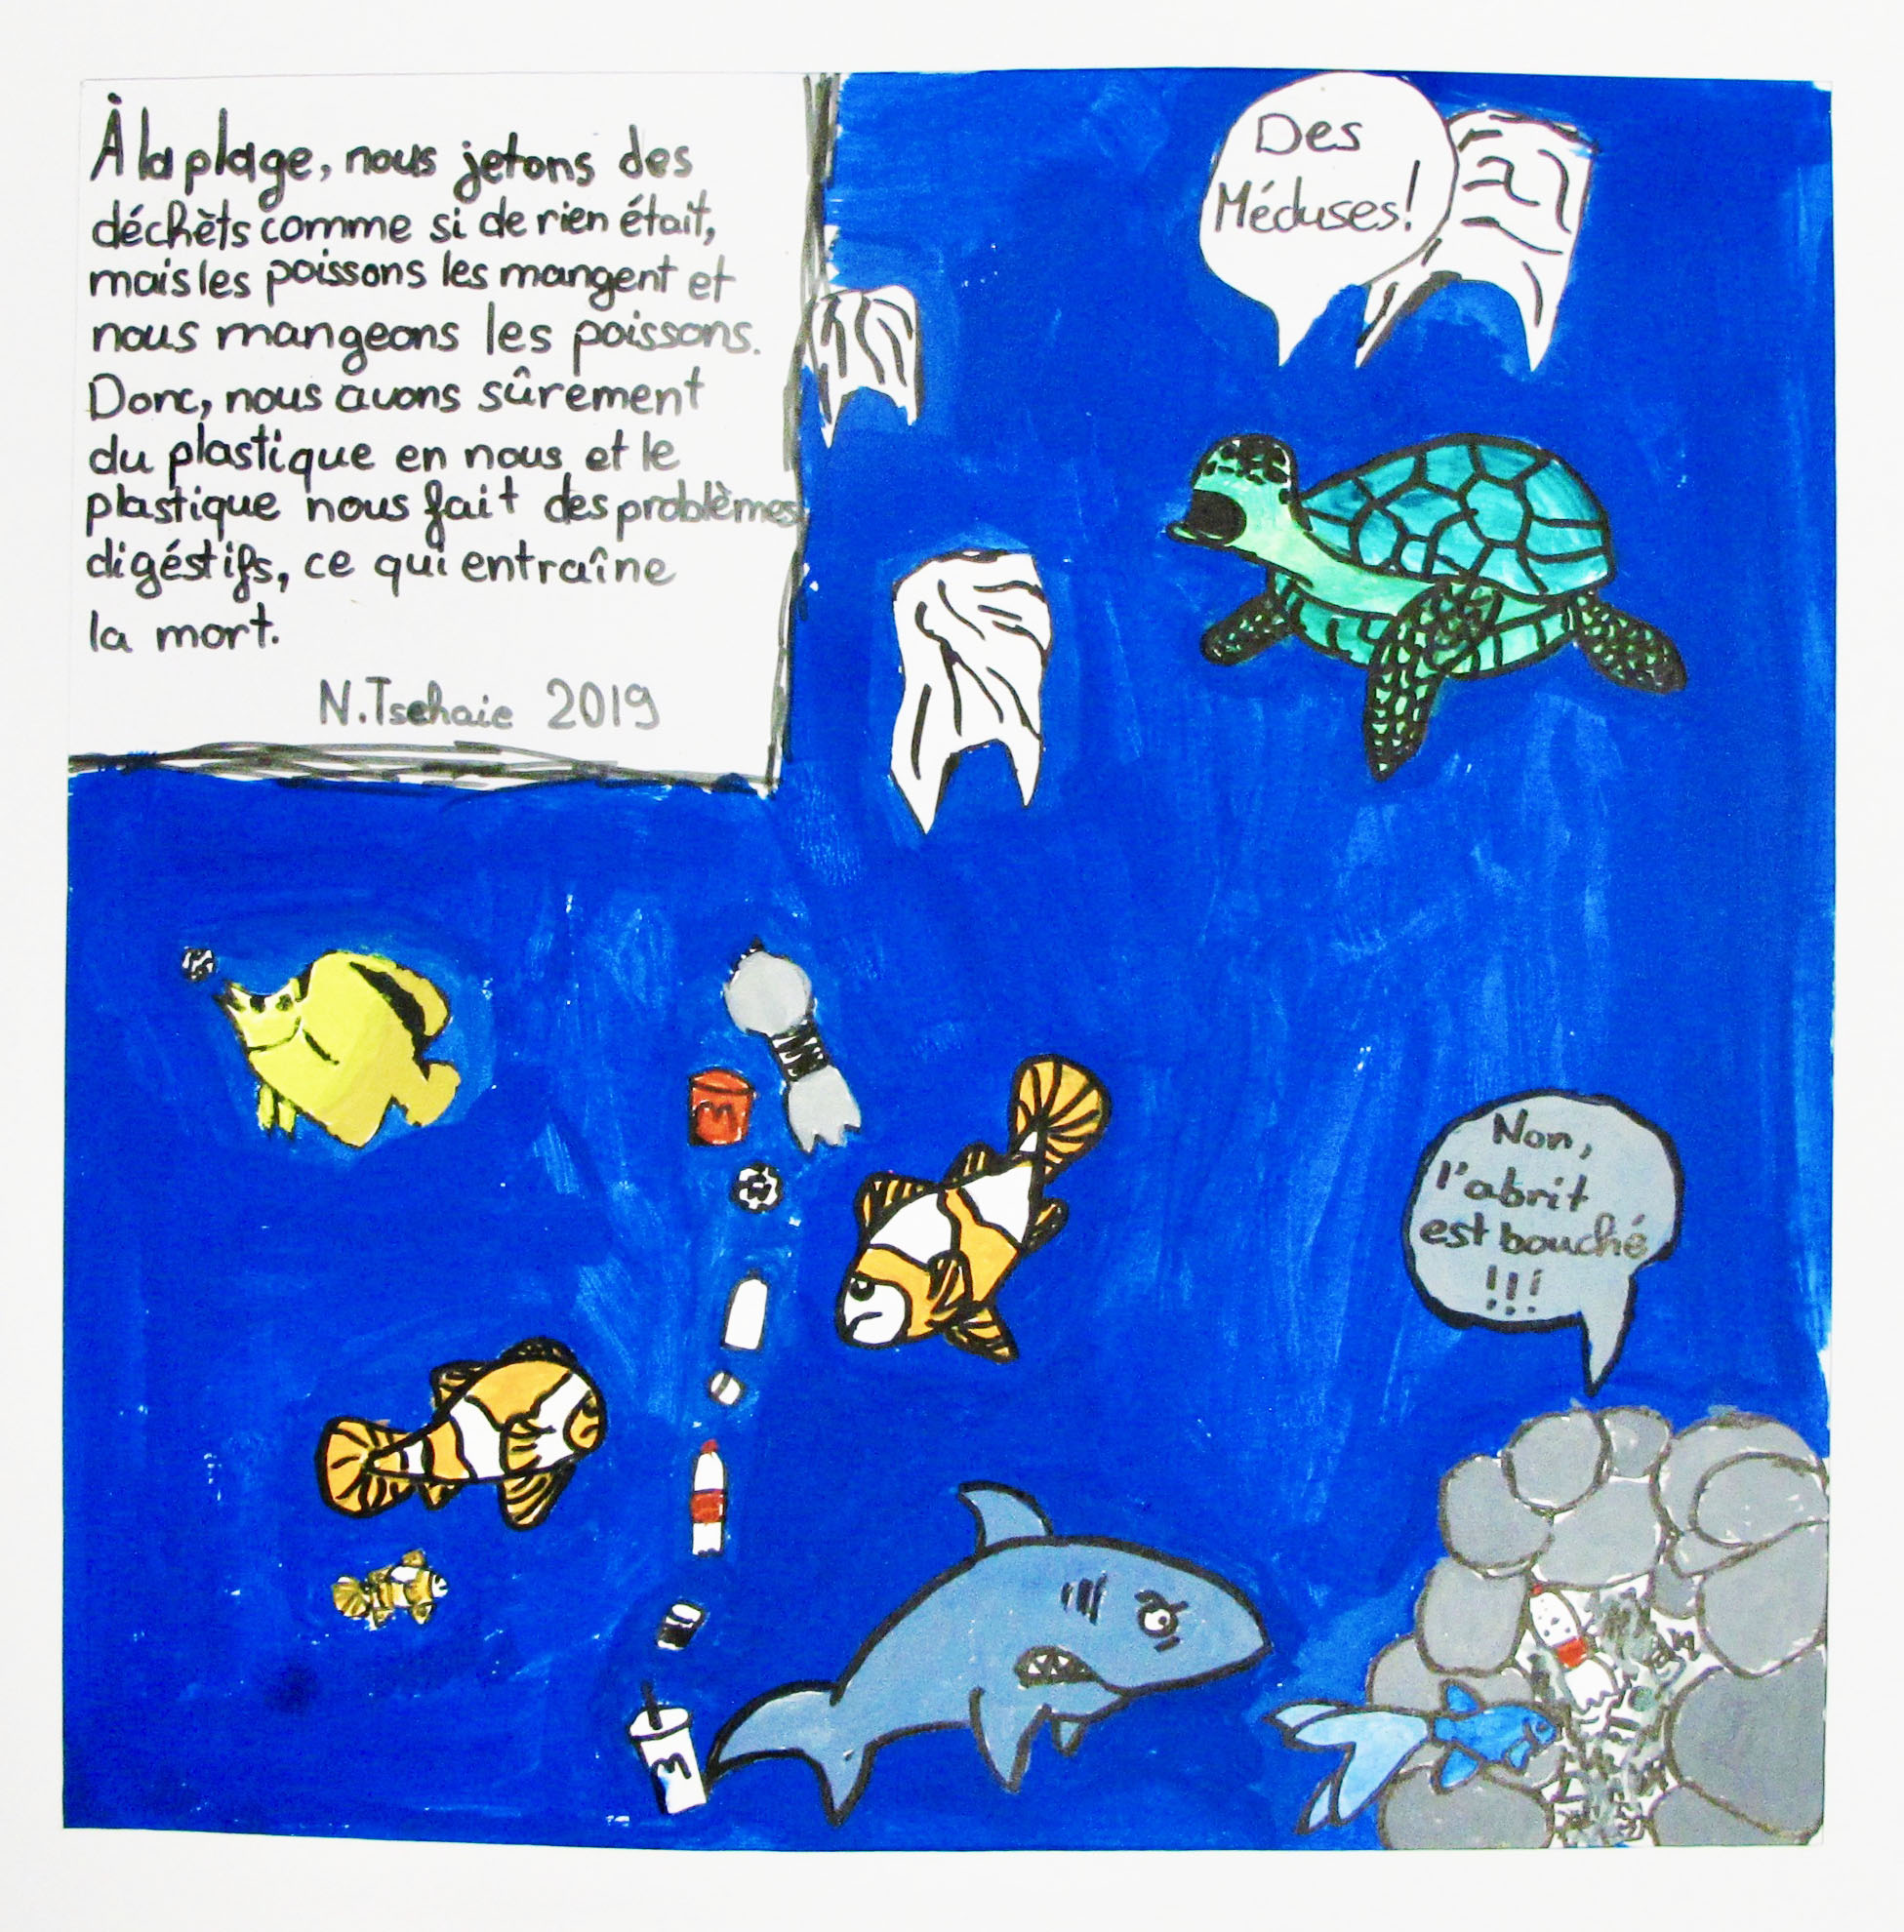 À la plage, nous jetons des
déchèts comme si de rien était,
mais les poissons les mangent et
nous mangeons les poissons.
Donc, nous avons sûrement
du plastique en nous et le
plastique nous fait des problèmes
digéstifs, ce qui entraîne
la mort.
N.Tsehaie 2019
Des
Méduses!
Non,
l'abrit
est bouché
!!!
M
M